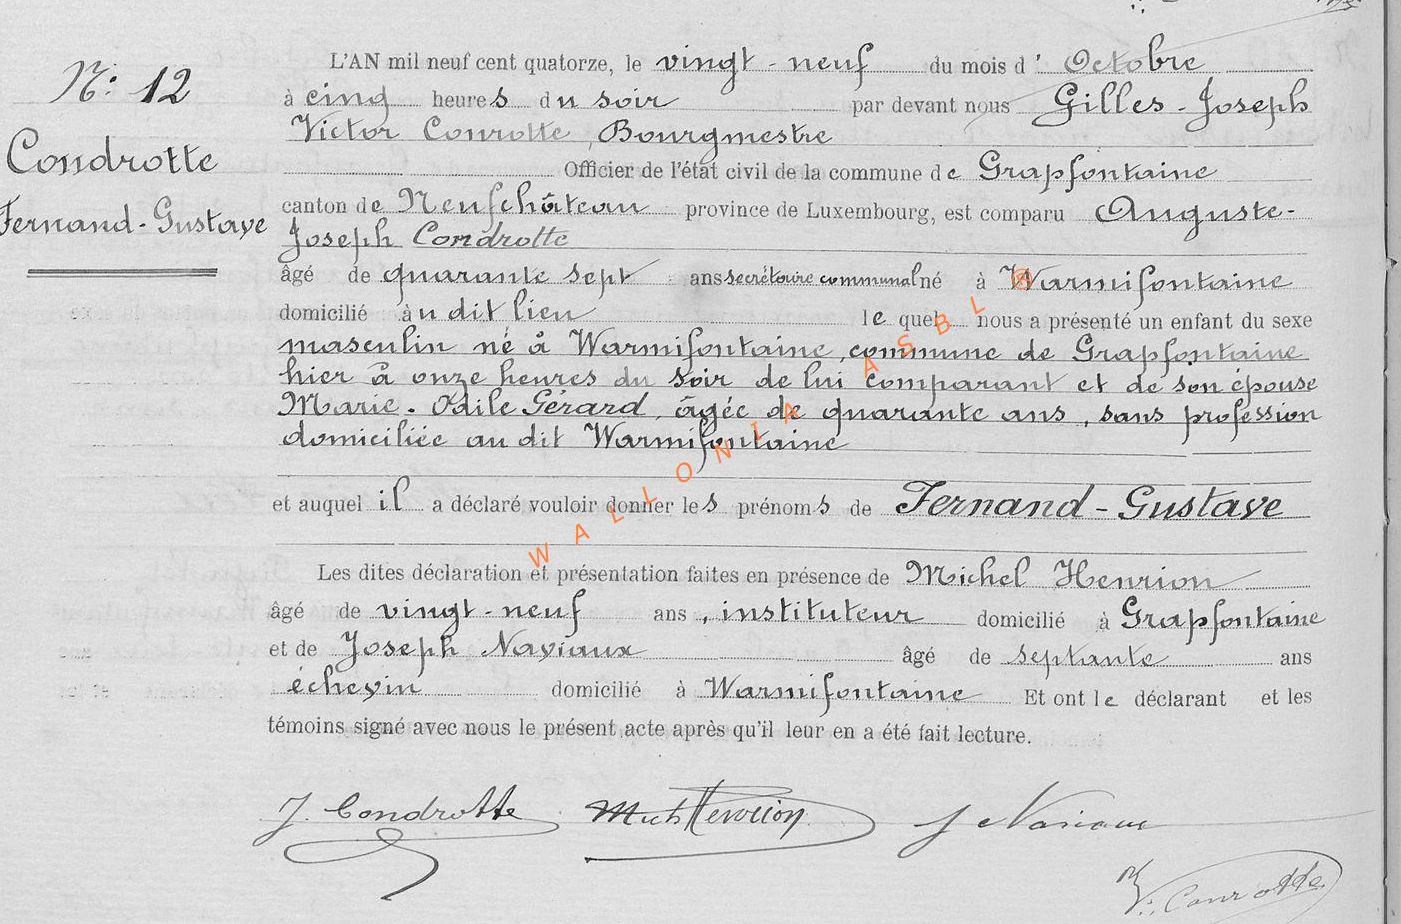 N°: 12
Condrotte
Fernand-Gustave
L'AN mil neuf cent quatorze, le vingt-neuf du mois d'Octobre
à cinq heures du soir par devant nous Gilles-Joseph
Victor Conrotte, Bourgmestre
Officier de l'état civil de la commune de Grapfontaine
canton de Neufchâteau province de Luxembourg, est comparu Auguste-
Joseph Condrotte
âgé de quarante sept ans secrétaire communal né à Warmifontaine
domicilié au dit lieu lequel nous a présenté un enfant du sexe
masculin né à Warmifontaine, commune de Grapfontaine
hier à onze heures du soir de lui comparant et de son épouse
Marie-Odile Gérard, âgée de quarante ans, sans profession
domiciliée au dit Warmifontaine
et auquel il a déclaré vouloir donner les prénoms de Fernand-Gustave
Les dites déclaration et présentation faites en présence de Michel Henrion
âgé de vingt-neuf ans, instituteur domicilié à Grapfontaine
et de Joseph Naviaux âgé de septante ans
échevin domicilié à Warmifontaine Et ont le déclarant et les
témoins signé avec nous le présent acte après qu'il leur en a été fait lecture.
J. Condrotte Mich Henrion J Naviaux
V. Conrotte
WALLONIA ASBL ®